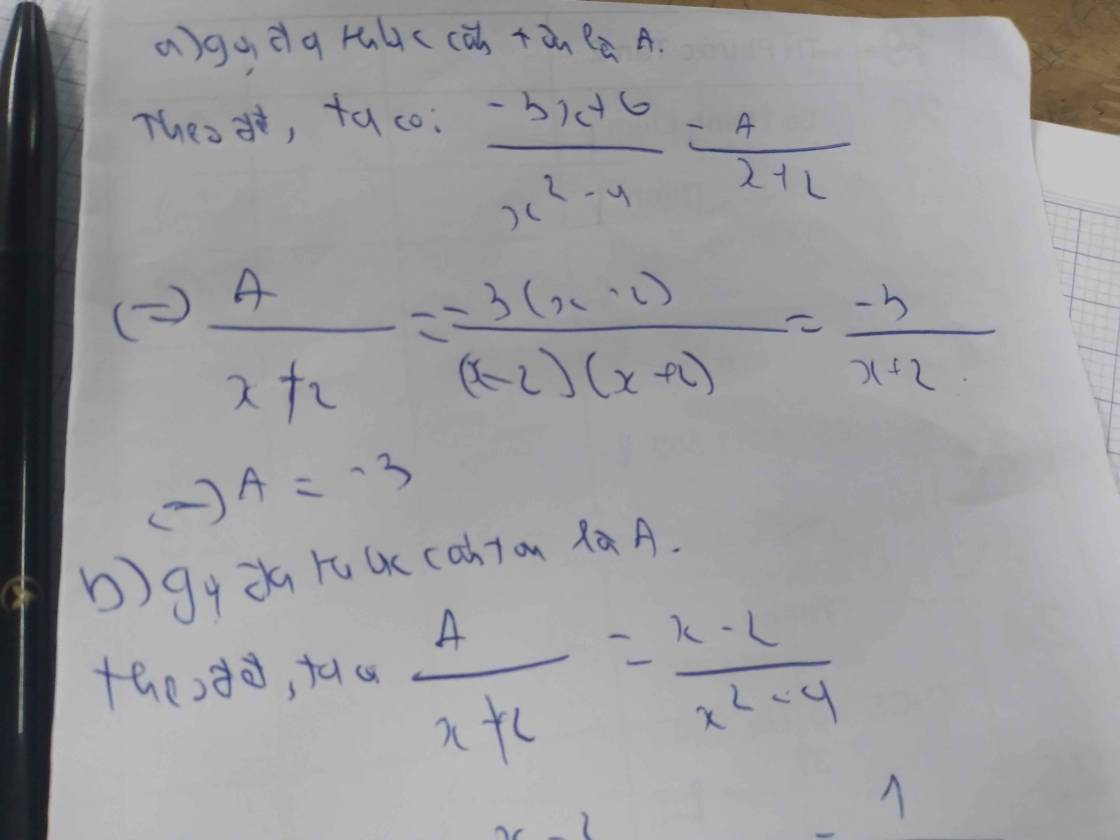 a) gọi đa thức cần tìm là A.
Theo đề, ta có: (-3x+6)/(x²-4) = A/(x+2)
(=) A/(x+2) = -3(x-2)/((x-2)(x+2)) = -3/(x+2).
(=) A = -3
b) gọi đa thức cần tìm là A.
theo đề, ta có A/(x+2) = (x-2)/(x²-4)
1